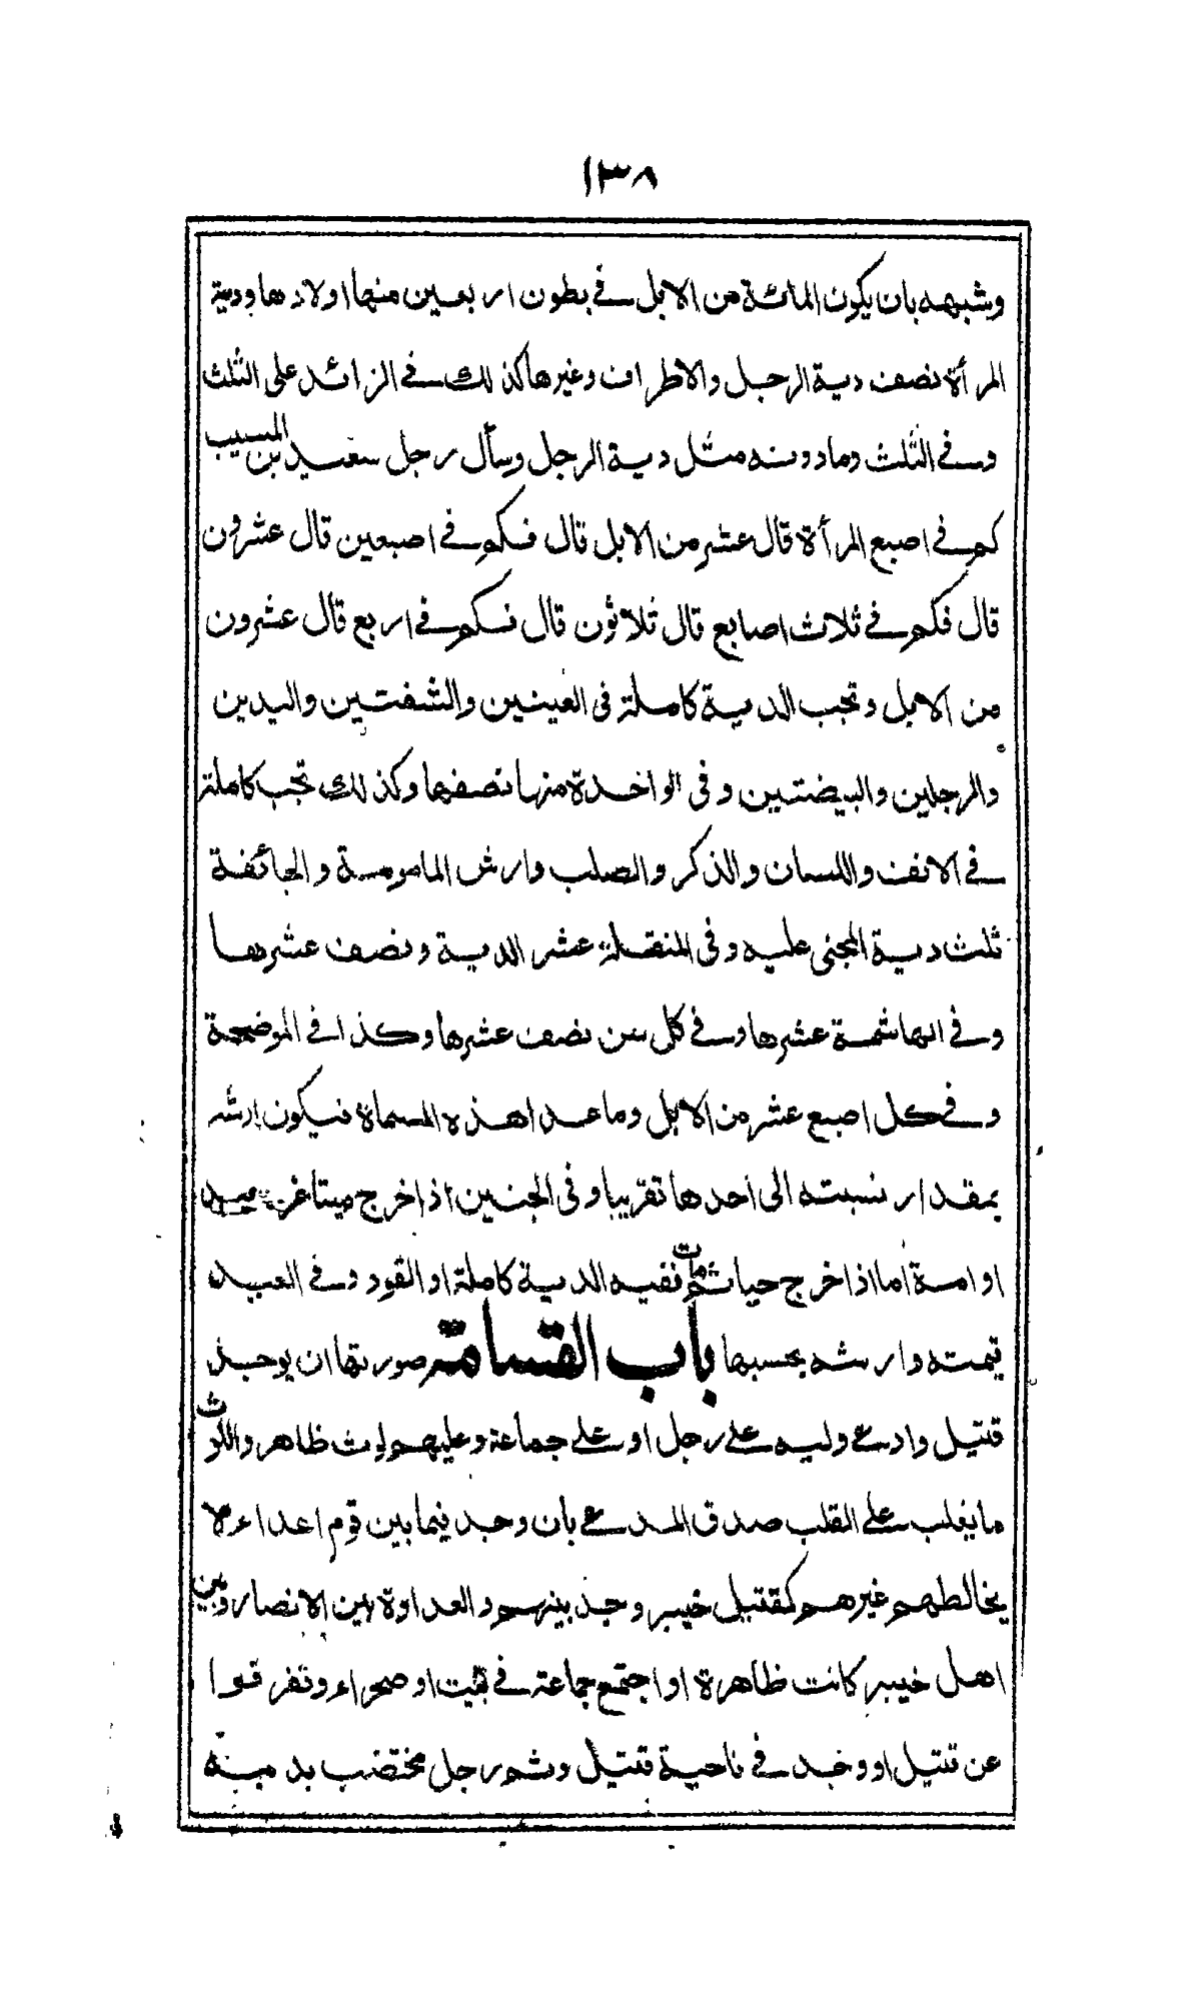 ١٣٨
وشبهه بان يكون المائة من الابل فى بطون اربعين منها اولادها ودية
المرأة نصف دية الرجل والاطراف وغيرها كذلك فى الزائد على الثلث
وفى الثلث ومادونه مثل دية الرجل وسأل رجل سعيد بن المسيب
كم فى اصبع المرأة قال عشر من الابل قال فكم فى اصبعين قال عشرون
قال فكم فى ثلاث اصابع قال ثلاثون قال فكم فى اربع قال عشرون
من الابل وتجب الدية كاملة فى العينين والشفتين واليدين
والرجلين والبيضتين وفى الواحدة منها نصفها وكذلك تجب كاملة
فى الانف واللسان والذكر والصلب وارش المامومة والجائفة
ثلث دية المجنى عليه وفى المنقلة عشر الدية ونصف عشرها
وفى الهاشمة عشرها وفى كل سن نصف عشرها وكذا فى الموضحة
وفى كل اصبع عشر من الابل وما عدا هذه المسماة فيكون ارشه
بمقدار نسبته الى احدها تقريبا وفى الجنين اذا خرج ميتا غرة عبد
او امة اما اذا خرج حيا ثم مات ففيه الدية كاملة او القود وفى العبد
قيمته وارشه بحسبها باب القسامة صورتها ان يوجد
قتيل وادعى وليه على رجل او على جماعة وعليهم لوث ظاهر واللوث
ما يغلب على القلب صدق المدعى بان وجد فيما بين قوم اعداء لا
يخالطهم غيرهم كقتيل خيبر وجد بينهم والعداوة بين الانصار وبين
اهل خيبر كانت ظاهرة او اجتمع جماعة فى بيت او صحراء وتفرقوا
عن قتيل او وجد فى ناحية قتيل وثم رجل مختضب بدمه